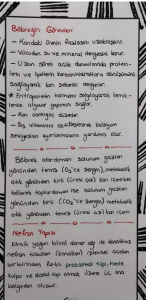 Böbreğin Görevleri
— Kandaki ürenin fazlasını uzaklaştırır.
— Vücudun su ve mineral dengesini korur.
— Uzun süreli açlık durumunda protein-
lerin ve lipitlerin karbonhidratlara dönüşümünü
sağlayarak kan şekerini dengeler.
* Eritropoietin hormonu salgılayarak kemik-
lerde alyuvar yapımını sağlar.
— Kan osmotik düzenler.
— D₃ vitaminini aktifleştirerek kalsiyum
seviyesinin ayarlanmasına yardımcı olur.
Böbrek atardamarı solunum gazları
yönünden temiz (O₂'ce zengin), metabolik
atık yönünden kirli (üresi çok) kan taşırken
böbrek toplardamarı ise solunum gazları
yönünden kirli (CO₂'ce zengin), metabolik
atık yönünden temiz (üresi az) kan taşır.
Nefron Yapısı
Etrafı yoğun kılcal damar ağı ile donatılmış
nefron tüpü
kulpu ve distal tüp olmak üzere üç ana
bölgeden oluşur.